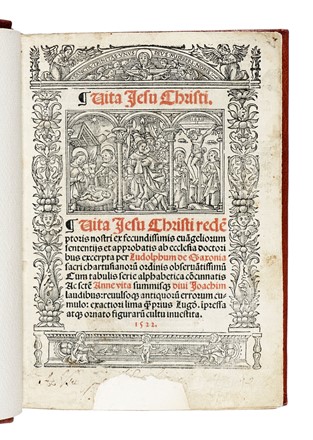 ¶ Vita Jesu Christi.
¶ Vita Jesu Christi redẽ
ptoris nostri ex fecundissimis euãgeliorum
sententijs et approbatis ab ecclesia doctori
bus excerpta per Ludolphum de Saxonia
sacri chartusianorũ ordinis obseruãtissimũ
Cum tabulis serie alphabetica cõcinnatis
Ac sctẽ Anne vita summisqȝ diui Joachim
laudibus: reuulsoqȝ antiquorũ errorum cu-
mulo: exactiori lima q̃ꝫ prius Lugd. ĩpressa
atqȝ ornato figurarũ cultu inuestita.
1522.